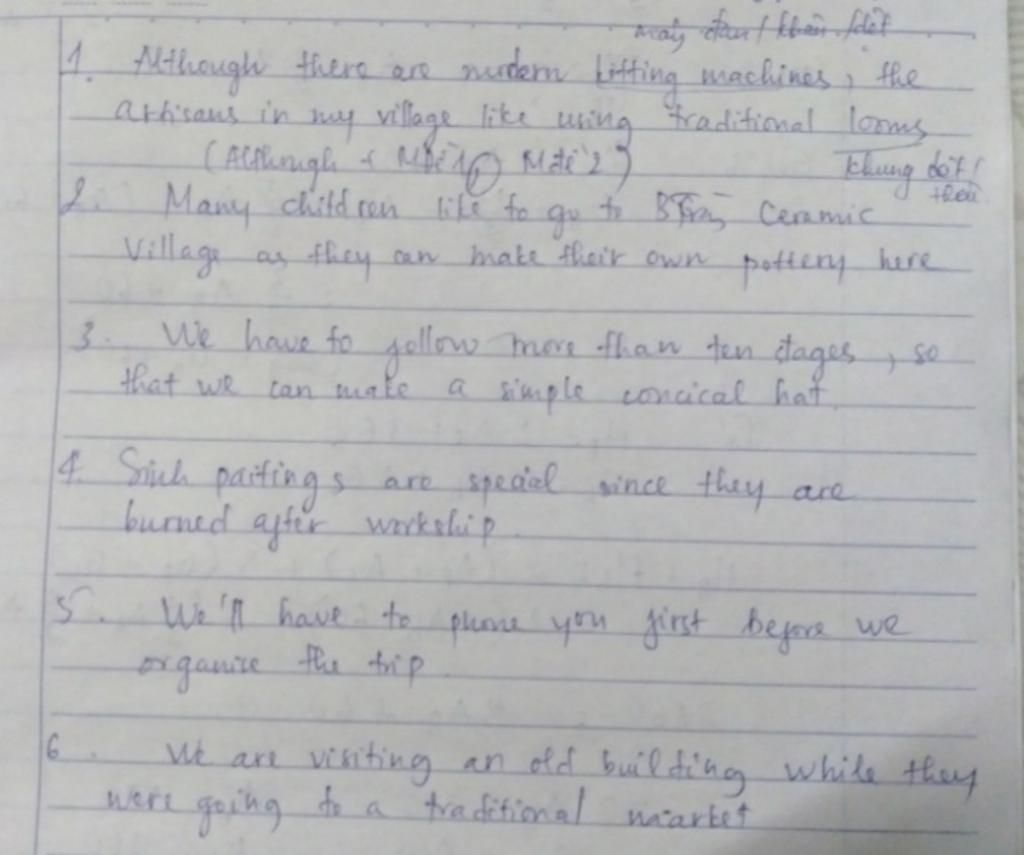 máy đan / khâu / dệt
1. Although there are mordern kitting machines, the
artisans in my village like using traditional looms
(Although + Mđề 1, Mđề 2) khung dệt /
thêu
2. Many children like to go to BTràng Ceramic
Village as they can make their own pottery here
3. We have to follow more than ten stages, so
that we can make a simple concical hat
4. Such paitings are special since they are
burned after workship.
5. We'll have to phone you first before we
organize the trip.
6. We are visiting an old building while they
were going to a traditional market